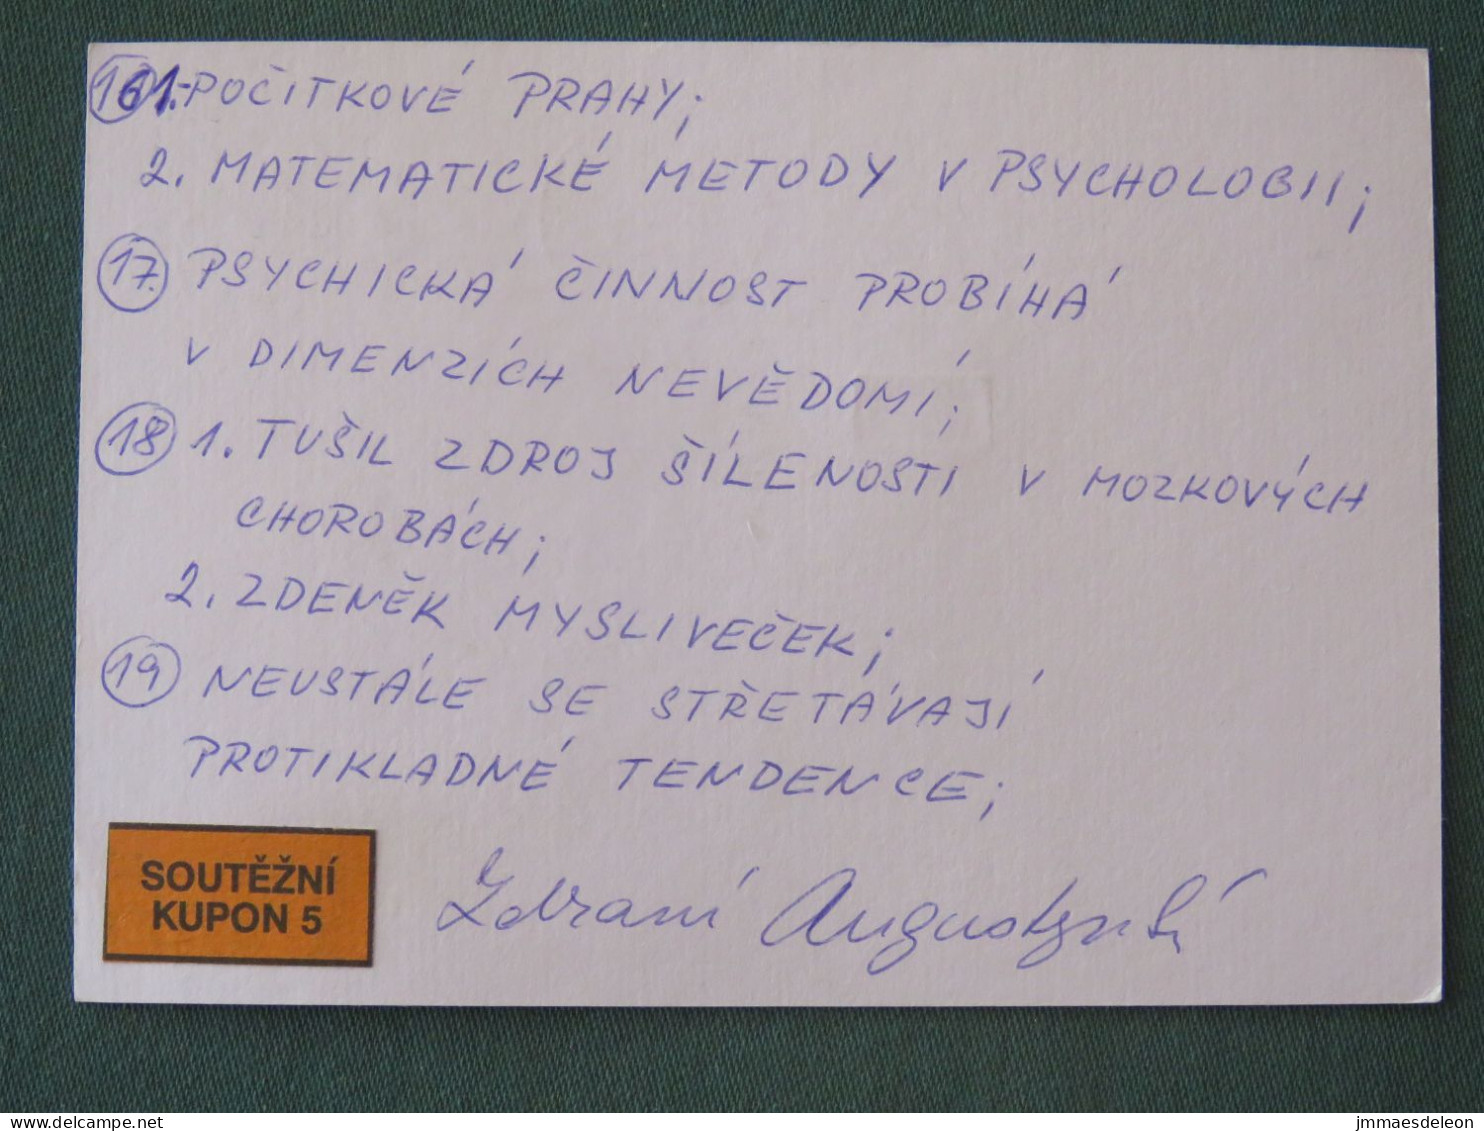 16 1. POČITKOVÉ PRAHY;
2. MATEMATICKÉ METODY V PSYCHOLOGII;
17. PSYCHICKÁ ČINNOST PROBÍHÁ
V DIMENZÍCH NEVĚDOMÍ;
18 1. TUŠIL ZDROJ ŠÍLENOSTI V MOZKOVÝCH
CHOROBÁCH;
2. ZDENĚK MYSLIVEČEK;
19 NEUSTÁLE SE STŘETÁVAJÍ
PROTIKLADNÉ TENDENCE;
SOUTĚŽNÍ
KUPON 5
Zdraví
delcampe.net
jmmaesdeleon